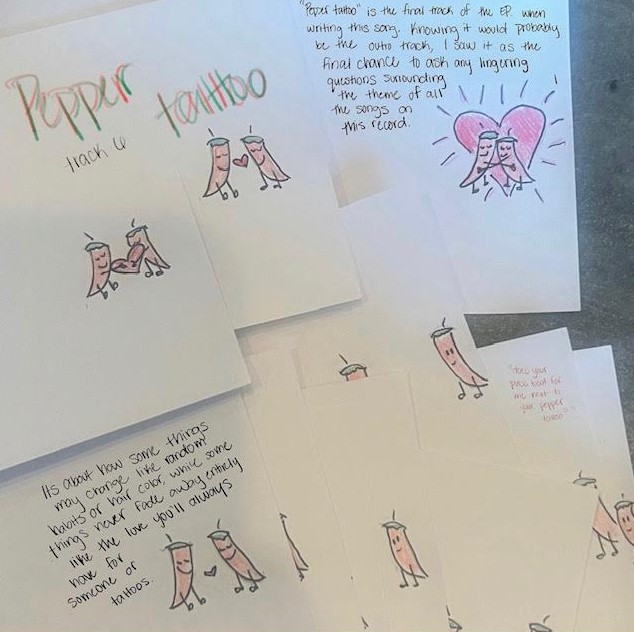 Pepper tattoo
track 6
"Peper tattoo" is the final track of the EP. when
writing this song. Knowing it would probably
be the outro track, I saw it as the
final chance to ask any lingering
questions surounding
the theme of all
the songs on
this record.
"does your
puls beat for
me next to
your pepper
tattoo"
Its about how some things
may change like random
habits or hair color, while some
things never fade away entirely
like the love you'll always
have for
someone or
tattoos.